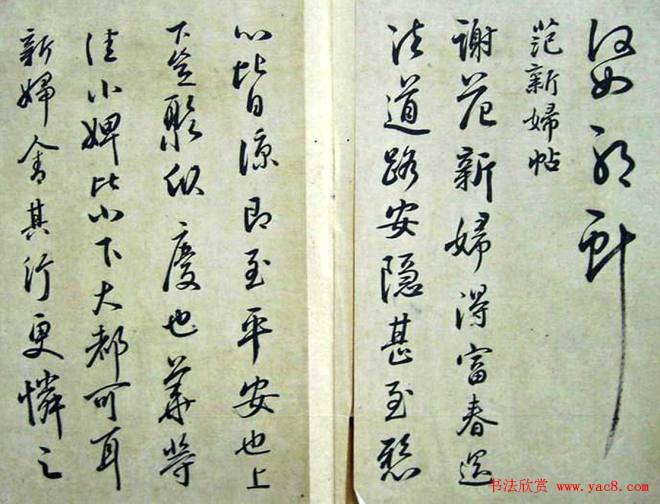 范新婦帖
謝范新婦得富春還
道路安隱甚至慰
心比日涼即至平安也上
下集聚欣慶也華等
佳小婢比小下大都可耳
新婦含其行更憐之
书法欣赏 www.yac8.com